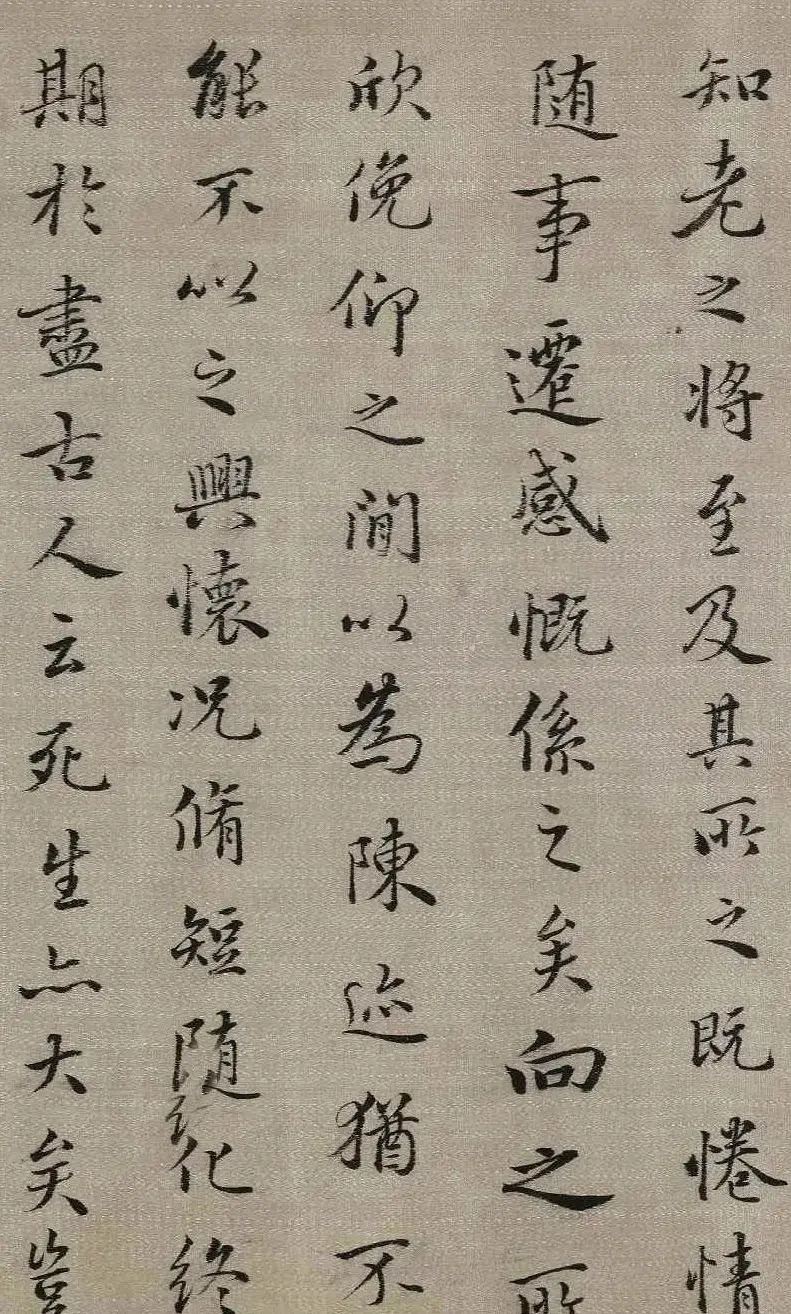 知老之將至及其所之既惓情
随事遷感慨係之矣向之所
欣俛仰之間以為陳迹猶不
能不以之興懷況脩短随化終
期於盡古人云死生亦大矣豈